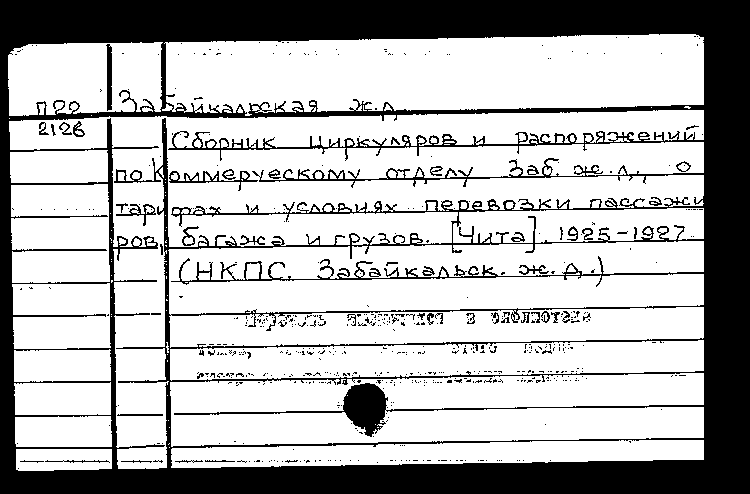 П22 Забайкальская ж.д.
2126
Сборник циркуляров и распоряжений
по Коммерческому отделу Заб. ж.д., о
тарифах и условиях перевозки пассажи
ров, багажа и грузов. [Чита]. 1925-1927
(НКПС. Забайкальск. ж.д.)
Перечень имеющихся в библиотеке
этого